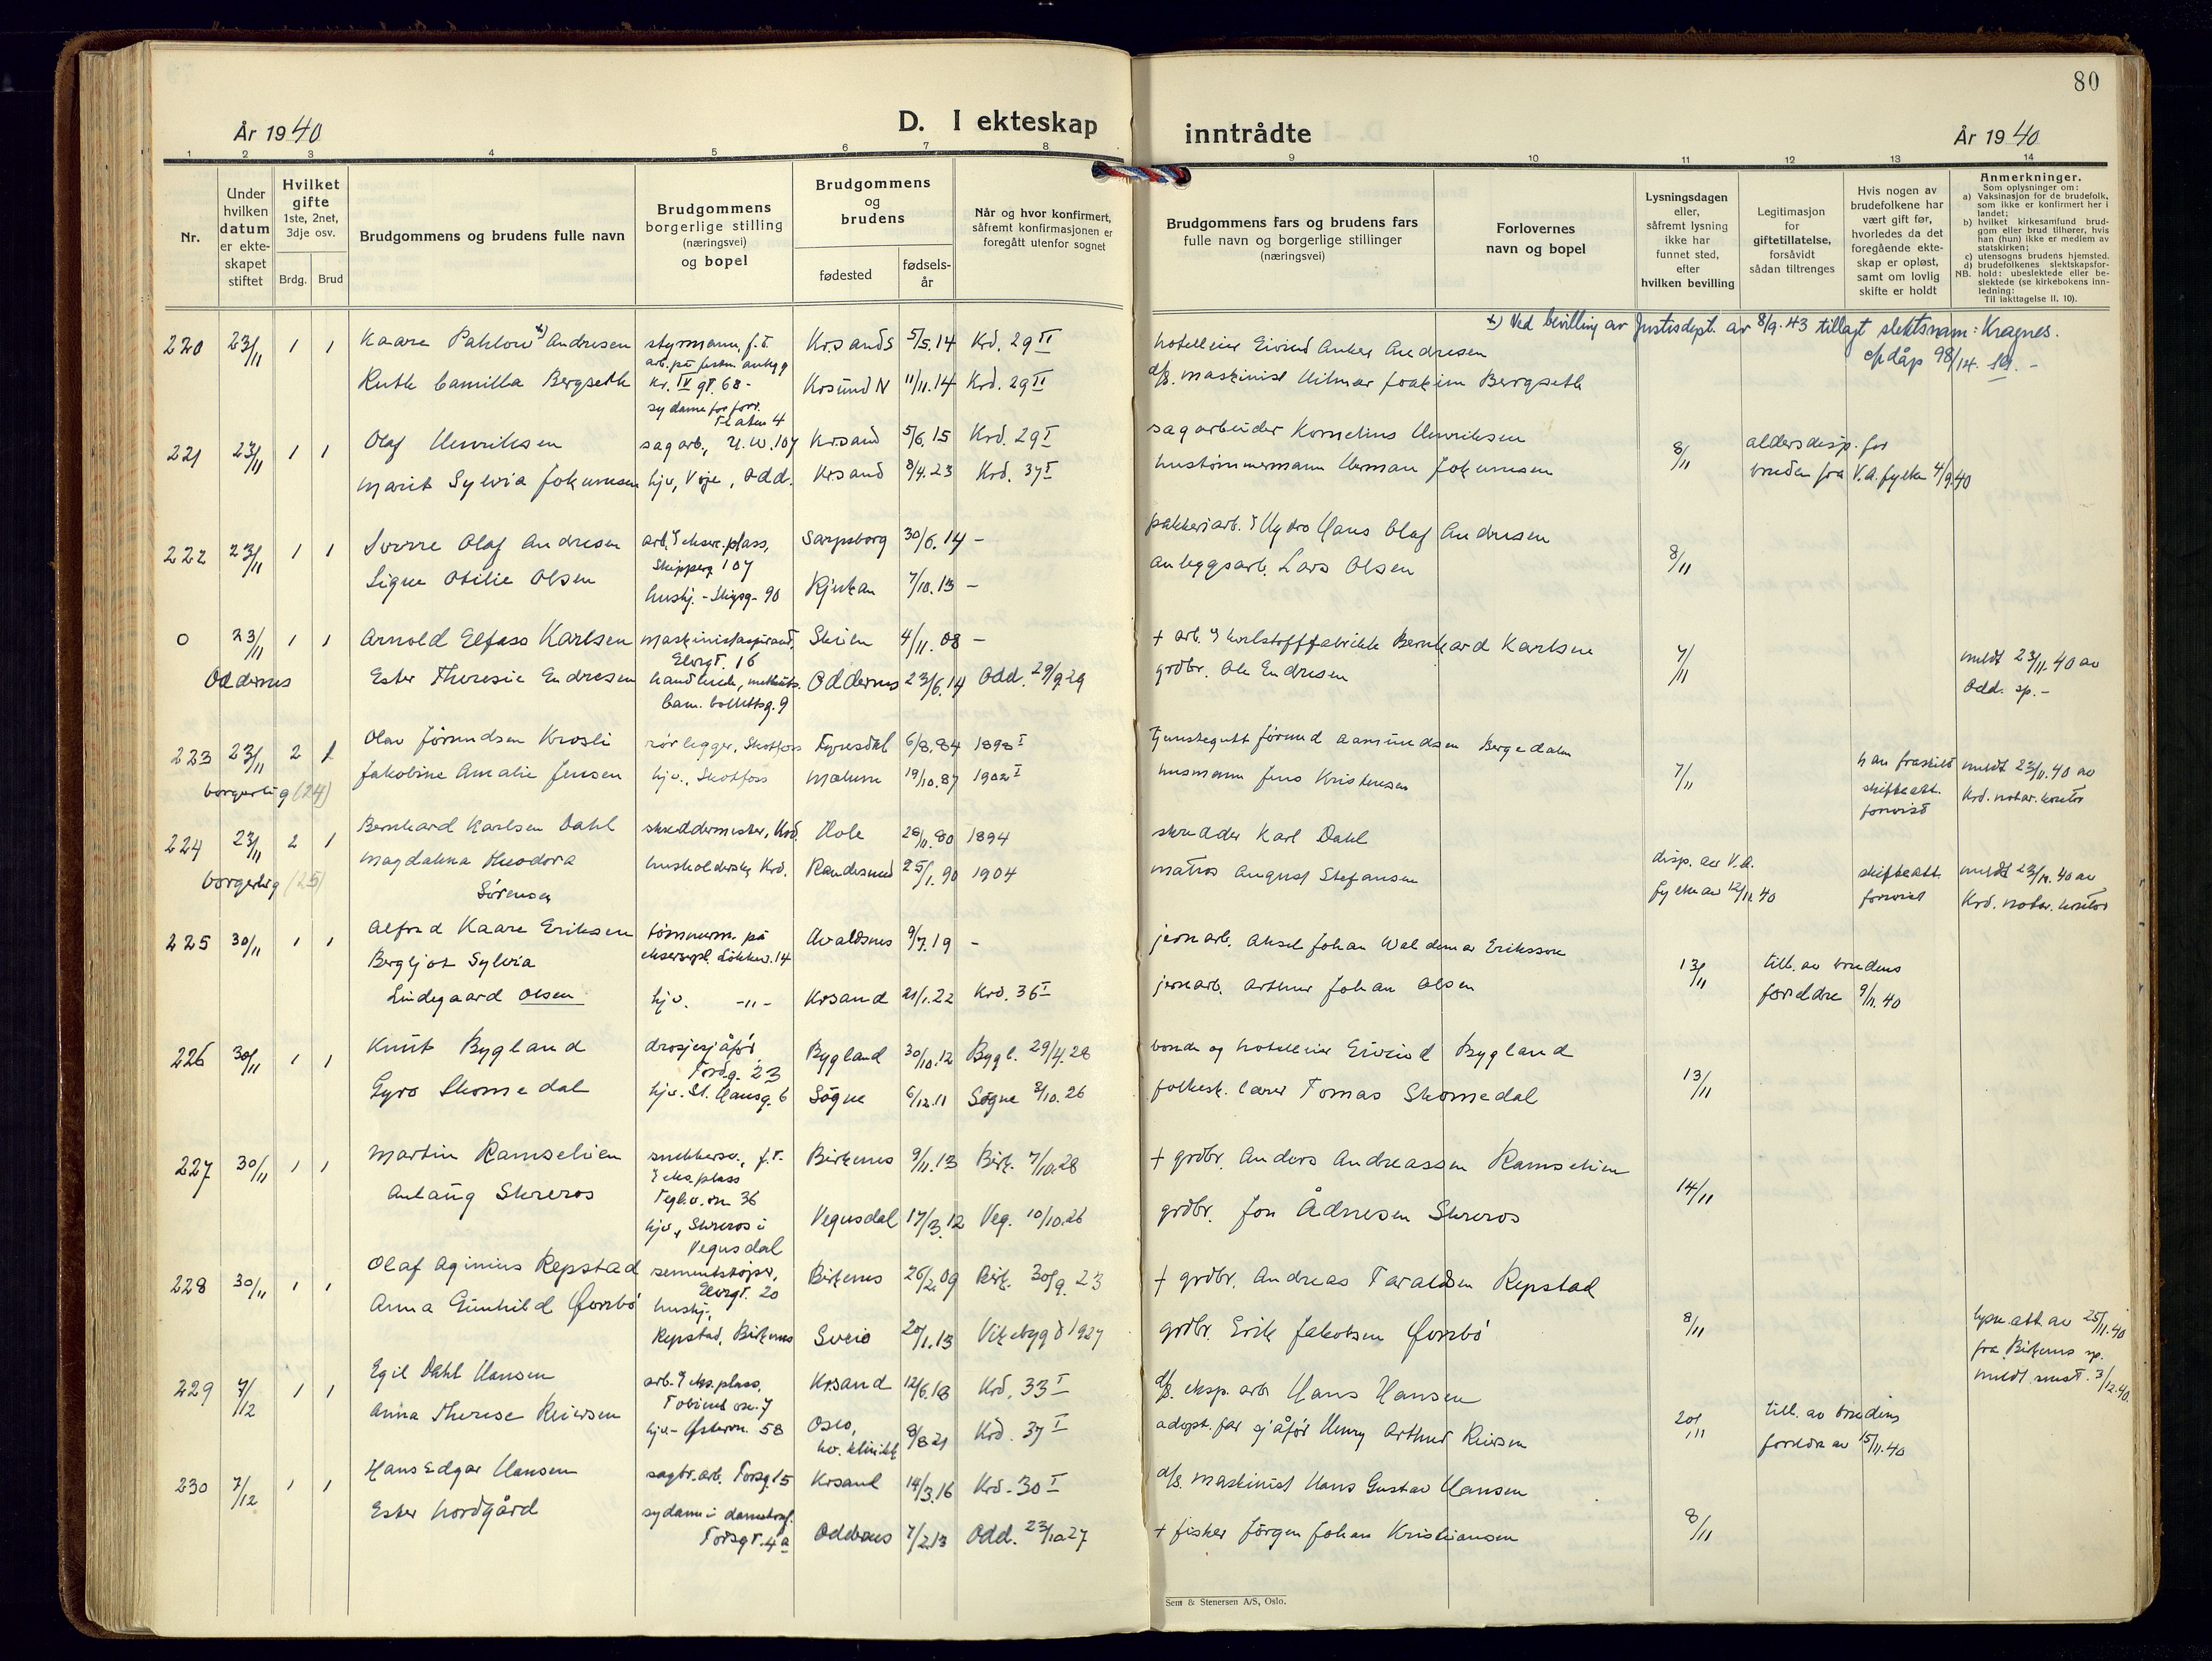 80
År 1940
D. I ekteskap
inntrådte
År 1940
1 2 3 4 5 6 7 8 9 10 11 12 13 14
Nr.
Under
hvilken
datum
er ekte-
skapet
stiftet
Hvilket
gifte
1ste, 2net,
3dje osv.
Brdg. Brud
Brudgommens og brudens fulle navn
Brudgommens
borgerlige stilling
(næringsvei)
og bopel
Brudgommens
og
brudens
fødested
fødsels-
år
Når og hvor konfirmert,
såfremt konfirmasjonen er
foregått utenfor sognet
Brudgommens fars og brudens fars
fulle navn og borgerlige stillinger
(næringsvei)
Forlovernes
navn og bopel
Lysningsdagen
eller,
såfremt lysning
ikke har
funnet sted,
efter
hvilken bevilling
Legitimasjon
for
giftetillatelse,
forsåvidt
sådan tiltrenges
Hvis nogen av
brudefolkene har
vært gift før,
hvorledes da det
foregående ekte-
skap er opløst,
samt om lovlig
skifte er holdt
Anmerkninger.
Som oplysninger om:
a) Vaksinasjon for de brudefolk,
som ikke er konfirmert her i
landet;
b) hvilket kirkesamfund brud-
gom eller brud tilhører, hvis
han (hun) ikke er medlem av
statskirken;
c) utensogns brudens hjemsted.
d) brudefolkenes slektskapsfor-
NB. hold: ubeslektede eller be-
slektede (se kirkebokens inn-
ledning:
Til iakttagelse II, 10).
x) Ved bevilling av Justisdept. av 8/9.43 tillagt slektsnam: Kragnes.
cf. dåp 98/14.
220 23/11 1 1 Kaare Pahlow x) Andresen styrmann, f.t. Kr.sand S 5/5.14 Krd. 29 II hotelleier Eivind Anker Andresen
Kr. IV gt. 68 -
Ruth Camilla Bergseth Krsund N 11/11.14 Krd. 29 II d/s. maskinist Hilmar Joakim Bergseth
221 23/11 1 1 Olaf Henriksen sagarb., U.W. 107 Krsand 5/6.15 Krd. 29 I sagarbeider Kornelius Henriksen 8/11 aldersdisp. for
Marit Sylvia Jokumsen hjv, Voje, Odd. Krsand 8/4.23 Krd. 37 I hustømmermann Herman Jokumsen bruden fra V.A. fylke 4/9.40
222 23/11 1 1 Sverre Olaf Andresen arb. i ekser.plass, Sarpsborg 30/6.14 - pakkeriarb. i Hydro Hans Olaf Andresen 8/11
Skipperg. 107
Signe Otilie Olsen hushj. - Skipsg. 90 Rjukan 7/10.13 - anleggsarb. Lars Olsen
0 23/11 1 1 Arnold Elfass Karlsen maskinistaspirant, Skien 4/11.08 - + arb. i karlstofffabrikk Bernhard Karlsen 7/11 meldt 23/11.40 av
Elvegt. 16
Oddernes Ester Theresie Endresen Oddernes 23/6.14 Odd. 29/9 29 grdbr. Ole Endresen Odd. sp. -
223 23/11 2 1 Olav Jørundsen Krosli rørlegger, Skotfoss Fyresdal 6/8.84 1898 I tjenstegutt Jørund Aamundsen Bergedalen 7/11 han fraskilt meldt 23/11.40 av
Jakobine Amalie Jensen hjv., Skotfoss Mælum 19/10.87 1902 I husmann Jens Kristensen skifteatt. Krd. notar. kontor
borgerlig (24) forevist
224 23/11 2 1 Bernhard Karlsen Dahl skreddermester, Krd. Hole 28/11.80 1894 skredder Karl Dahl disp. av V.A.
Magdalena Theodora husholderske, Krd. Randesund 25/1.90 1904 matros August Stefansen fylke av 12/11.40 skifteatt. forevist meldt 23/11.40 av
borgerlig (25) Sørensen Krd. notar. kontor
225 30/11 1 1 Alfred Kaare Eriksen tømmerm. på Avaldsnes 9/7.19 - jernarb. Aksel Johan Waldemar Eriksson 13/11 till. av brudens
Bergljot Sylvia
Lindegaard Olsen hjv. -"- Krsand 21/1.22 Krd. 36 I jernarb. Arthur Johan Olsen foreldre 9/11.40
226 30/11 1 1 Knut Bygland drosjesjåfør, Bygland 30/10.12 Bygl. 29/4.28 bonde og hotelleier Eivind Bygland 13/11
Tordg. 23
Gyro Skomedal hjv. St. Hansg. 6 Søgne 6/12.11 Søgne 3/10.26 folkesk. lærer Tomas Skomedal
227 30/11 1 1 Martin Ramselien snekkersv., f.t. Birkenes 9/11.13 Birk. 7/10.28 + grdbr. Anders Andreassen Ramselien 14/11
i eks.plass
Teglv.vn 36
Anlaug Skreros hjv., Skreros i Vegusdal 17/3.12 Veg. 10/10.26 grdbr. Jon Ådnesen Skreros
Vegusdal
228 30/11 1 1 Olaf Aginius Repstad sementstøper, Birkenes 26/2.09 Birk. 30/9.23 + grdbr. Andreas Taraldsen Repstad
Elvegt. 20
Anna Gunhild Ørrebø hushj., 8/11
Repstad, Birkenes Sveio 20/1.13 Vikebygd 1927 grdbr. Erik Jakobsen Ørrebø lysn.att. av 25/11.40
fra Birkenes sp.
meldt smst. 3/12.40.
229 7/12 1 1 Egil Dahl Hansen arb. i eks.plass, Krsand 12/6.18 Krd. 33 I d/s. eksp. arb Hans Hansen 20/11 till. av brudens
Anna Therese Reiersen hjv. - Østervn. 58 Oslo, 8/8 21 Krd. 37 I adopt. far sjåfør Henry Arthur Reiersen foreldre av 15/11.40
kv. klinikk
230 7/12 1 1 Hans Edgar Hansen sagbr.arb. Torsg. 15 Krsand 14/3.16 Krd. 30 I d/s. maskinist Hans Gustav Hansen 8/11
Ester Nordgård Oddernes 7/2.13 Odd. 23/10 27 + fisker Jørgen Johan Kristiansen
Tordsgt. 4a
Sem & Stenersen A/S, Oslo.